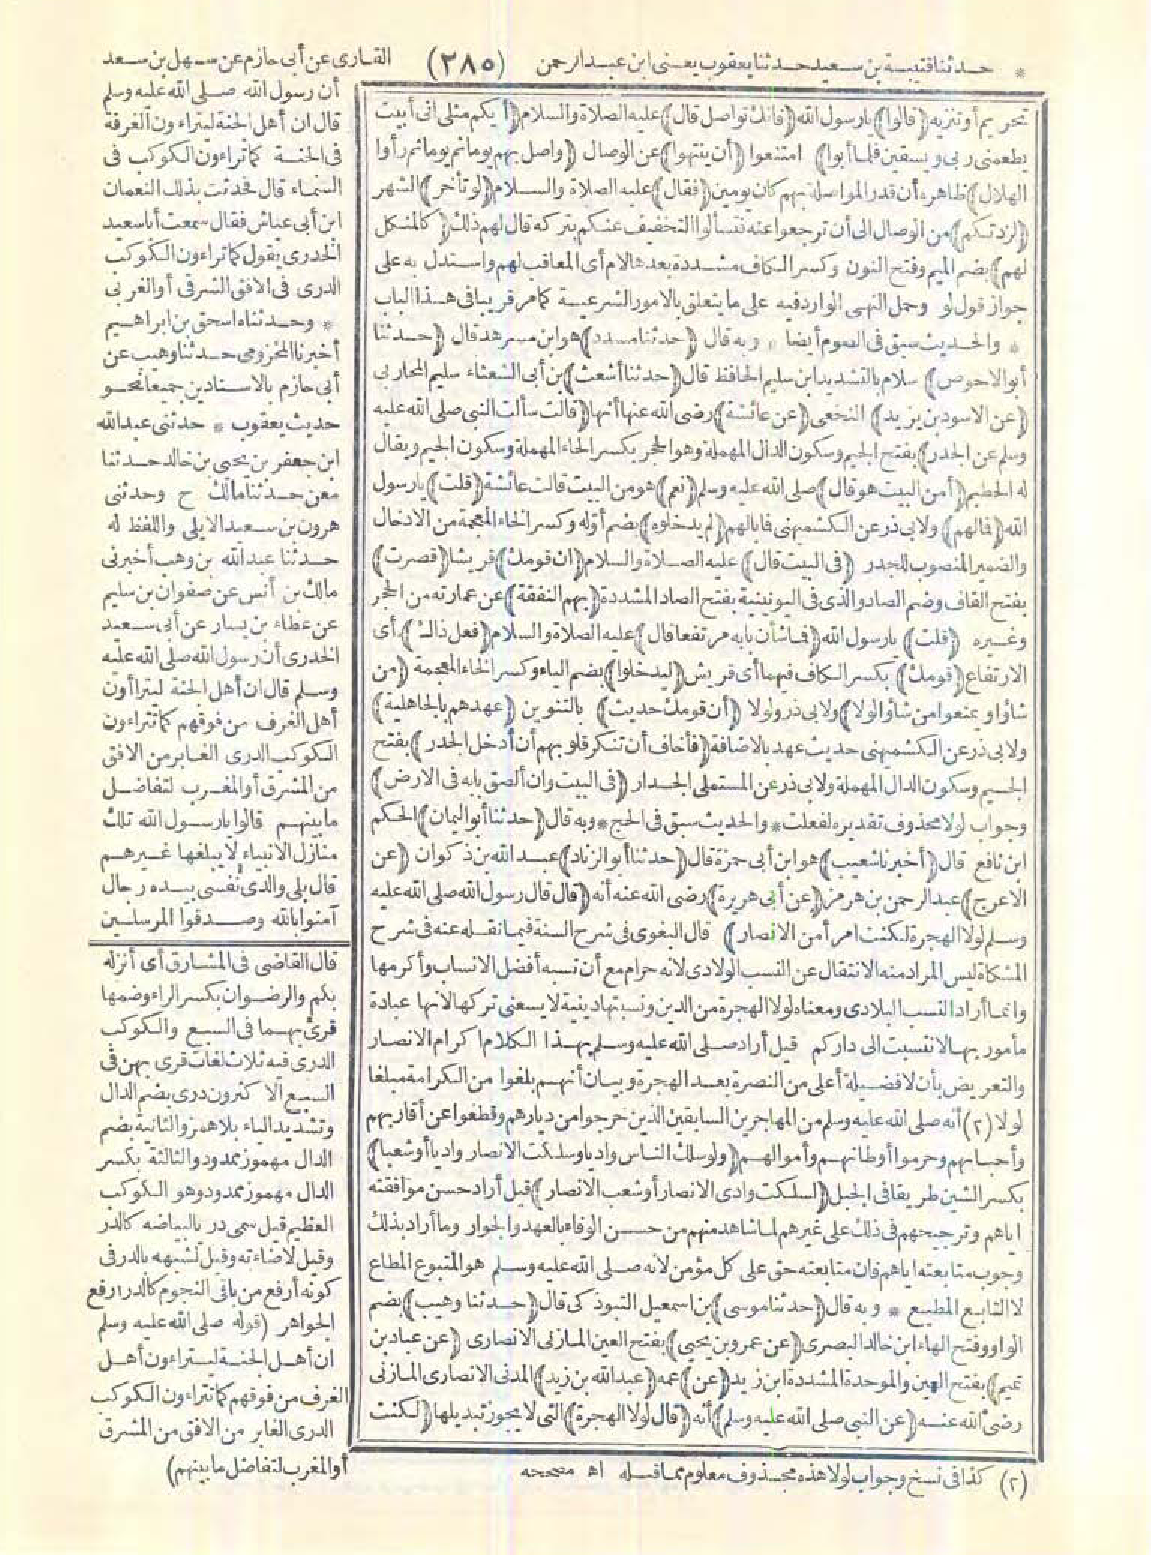 * حدثنا قتيبة بن سعيد حدثنا يعقوب يعنى ابن عبد الرحمن (٢٨٥) القارى عن أبى حازم عن سهل بن سعد
تحريم أو تنزيه (قالوا) يارسول الله (فانك تواصل قال) عليه الصلاة والسلام (أيكم مثلى انى أبيت
يطعمنى ربى ويسقين فلما أبوا) امتنعوا (أن ينتهوا) عن الوصال (واصل بهم يوما ثم يوما ثم رأوا
الهلال) ظاهره أن قدر المواصلة بهم كان يومين (فقال) عليه الصلاة والسلام (لو تأخر) الشهر
(لزدتكم) من الوصال الى أن ترجعوا عنه فتسألوا التخفيف عنكم بتركه قال لهم ذلك (كالمنكل
لهم) بضم الميم وفتح النون وكسر الكاف مشددة بعدها لام أى المعاقب لهم واستدل به على
جواز قول لو وحمل النهى الوارد فيه على ما يتعلق بالامور الشرعية كما مر قريبا فى هذا الباب
* والحديث سبق فى الصوم أيضا * وبه قال (حدثنا مسدد) هو ابن مسرهد قال (حدثنا
أبو الاحوص) سلام بالتشديد ابن سليم الحافظ قال (حدثنا أشعث) بن أبى الشعثاء سليم المحاربى
(عن الاسود بن يزيد) النخعى (عن عائشة) رضى الله عنها أنها (قالت سألت النبى صلى الله عليه
وسلم عن الجدر) بفتح الجيم وسكون الدال المهملة وهو الحجر بكسر الحاء المهملة وسكون الجيم ويقال
له الحطيم (أمن البيت هو قال) صلى الله عليه وسلم (نعم) هو من البيت قالت عائشة (قلت) يارسول
الله (فالهم) ولابى ذر عن الكشميهنى فما بالهم (لم يدخلوه) بضم أوله وكسر الخاء المعجمة من الادخال
والضمير المنصوب للجدر (فى البيت قال) عليه الصلاة والسلام (ان قومك) قريشا (قصرت)
بفتح القاف وضم الصاد والذى فى اليونينية بفتح الصاد المشددة (بهم النفقة) عن عمارته من الحجر
وغيره (قلت) يارسول الله (فما شأن بابه مرتفعا قال) عليه الصلاة والسلام (فعل ذاك) أى
الارتفاع (قومك) بكسر الكاف فيهما أى قريش (ليدخلوا) بضم الياء وكسر الخاء المعجمة (من
شاؤا ويمنعوا من شاؤا لولا) ولابى ذر ولولا (أن قومك حديث) بالتنوين (عهدهم بالجاهلية)
ولابى ذر عن الكشميهنى حديث عهد بالاضافة (فأخاف أن تنكر قلوبهم أن أدخل الجدر) بفتح
الجيم وسكون الدال المهملة ولابى ذر عن المستملى الجدار (فى البيت وان ألصق بابه فى الارض)
وجواب لولا محذوف تقديره لفعلت * والحديث سبق فى الحج * وبه قال (حدثنا أبو اليمان) الحكم
ابن نافع قال (أخبرنا شعيب) هو ابن أبى حمزة قال (حدثنا أبو الزناد) عبد الله بن ذكوان (عن
الاعرج) عبد الرحمن بن هرمز (عن أبى هريرة) رضى الله عنه أنه (قال قال رسول الله صلى الله عليه
وسلم لولا الهجرة لكنت امرأ من الانصار) قال البغوى فى شرح السنة فيما نقله عنه فى شرح
المشكاة ليس المراد منه الانتقال عن النسب الولادى لانه حرام مع أن نسبه أفضل الانساب وأكرمها
وانما أراد النسب البلادى ومعناه لولا الهجرة من الدين ونسبتها دينية لا يسعنى تركها لانها عبادة
مأمور بها لانتسبت الى داركم قيل أراد صلى الله عليه وسلم بهذا الكلام اكرام الانصار
والتعريض بأن لا فضيلة أعلى من النصرة بعد الهجرة وبيان أنهم بلغوا من الكرامة مبلغا
لولا (٢) أنه صلى الله عليه وسلم من المهاجرين السابقين الذين خرجوا من ديارهم وقطعوا عن أقاربهم
وأحبابهم وحرموا أوطانهم وأموالهم (ولو سلك الناس واديا وسلكت الانصار واديا أو شعبا)
بكسر الشين طريقا فى الجبل (لسلكت وادى الانصار أو شعب الانصار) قيل أراد حسن موافقته
اياهم وترجيحهم فى ذلك على غيرهم لما شاهد منهم من حسن الوفاء بالعهد والجوار وما أراد بذلك
وجوب متابعته اياهم فان متابعته حق على كل مؤمن لانه صلى الله عليه وسلم هو المتبوع المطاع
لا التابع المطيع * وبه قال (حدثنا موسى) بن اسمعيل التبوذكى قال (حدثنا وهيب) بضم
الواو وفتح الهاء ابن خالد البصرى (عن عمرو بن يحيى) بفتح العين المازنى الانصارى (عن عباد بن
تميم) بفتح العين والموحدة المشددة ابن زيد (عن) عمه (عبد الله بن زيد) المدنى الانصارى المازنى
رضى الله عنه (عن النبى صلى الله عليه وسلم) أنه (قال لولا الهجرة) التى لا يجوز تبديلها (لكنت
(٢) كذا فى نسخ وجواب لولا هذه محذوف معلوم مما قبله اه مصححه
أن رسول الله صلى الله عليه وسلم
قال ان أهل الجنة ليتراءون الغرفة
فى الجنة كما تراءون الكوكب فى
السماء قال فحدثت بذلك النعمان
ابن أبى عياش فقال سمعت أبا سعيد
الخدرى يقول كما تراءون الكوكب
الدرى فى الافق الشرقى أو الغربى
* وحدثناه اسحق بن ابراهيم
أخبرنا المخزومى حدثنا وهيب عن
أبى حازم بالاسنادين جميعا نحو
حديث يعقوب * حدثنى عبد الله
ابن جعفر بن يحيى بن خالد حدثنا
معن حدثنا مالك ح وحدثنى
هرون بن سعيد الايلى واللفظ له
حدثنا عبد الله بن وهب أخبرنى
مالك بن أنس عن صفوان بن سليم
عن عطاء بن يسار عن أبى سعيد
الخدرى أن رسول الله صلى الله عليه
وسلم قال ان أهل الجنة ليتراءون
أهل الغرف من فوقهم كما تتراءون
الكوكب الدرى الغابر من الافق
من المشرق أو المغرب لتفاضل
ما بينهم قالوا يارسول الله تلك
منازل الانبياء لا يبلغها غيرهم
قال بلى والذى نفسى بيده رجال
آمنوا بالله وصدقوا المرسلين
قال القاضى فى المشارق أى أنزله
بكم والرضوان بكسر الراء وضمها
قرئ بهما فى السبع والكوكب
الدرى فيه ثلاث لغات قرى بهن فى
السبع الاكثرون درى بضم الدال
وتشديد الياء بلا همز والثانية بضم
الدال مهموز ممدود والثالثة بكسر
الدال مهموز ممدود وهو الكوكب
العظيم قيل سمى درى لبياضه كالدر
وقيل لاضاءته وقيل لشبهه بالدر فى
كونه أرفع من باقى النجوم كالدر أرفع
الجواهر (قوله صلى الله عليه وسلم
ان أهل الجنة ليتراءون أهل
الغرف من فوقهم كما تتراءون الكوكب
الدرى الغابر من الافق من المشرق
أو المغرب لتفاضل ما بينهم)